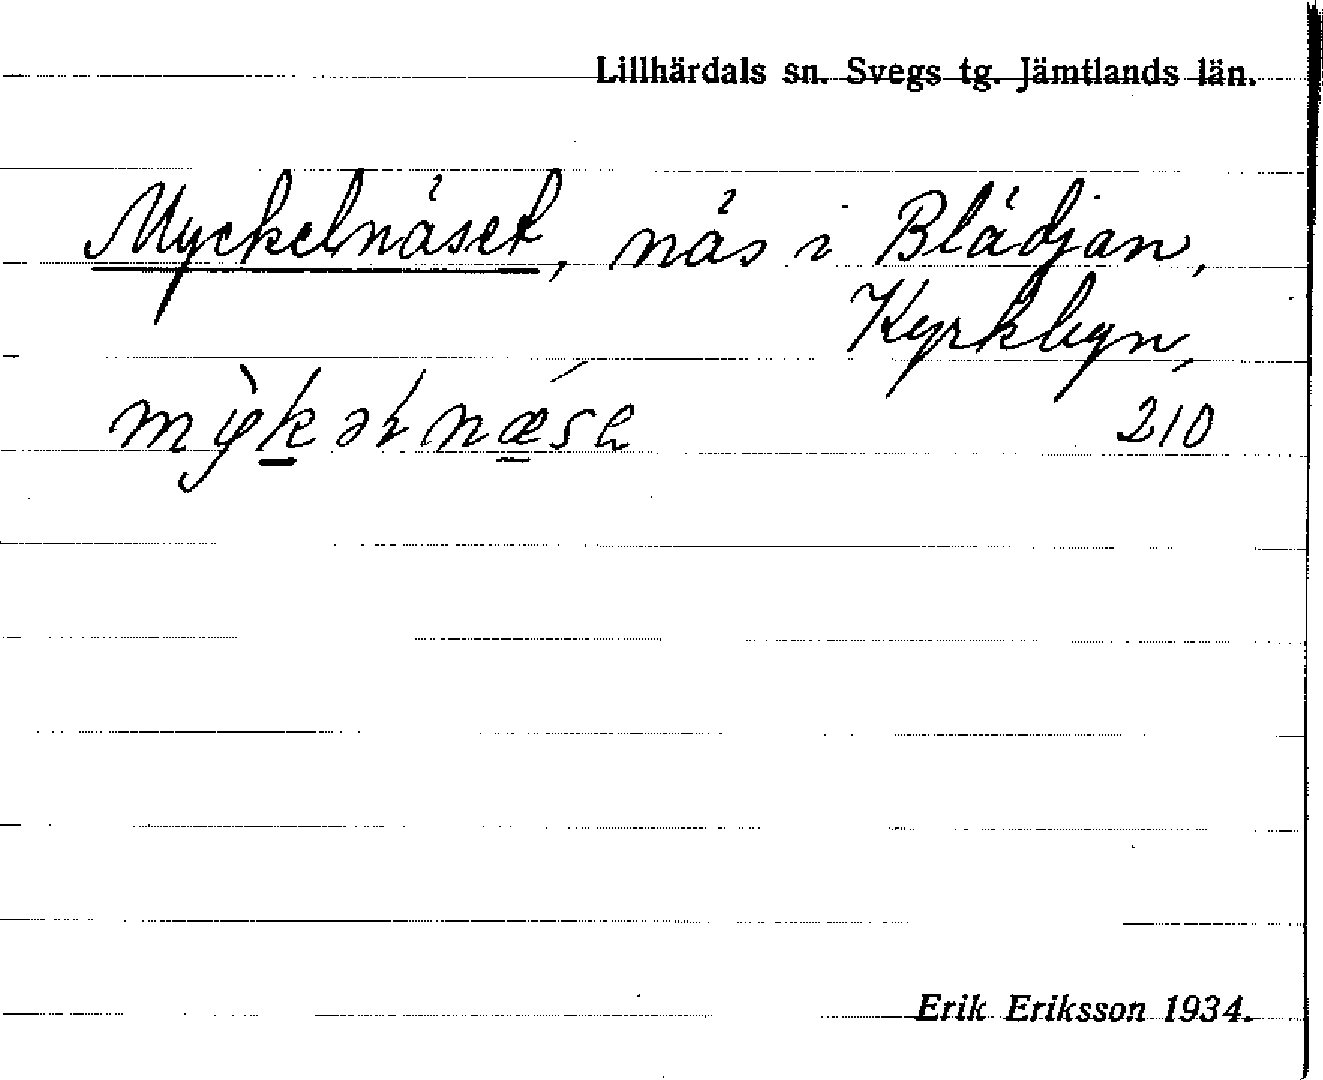 Lillhärdals sn. Svegs tg. Jämtlands län.
Myckelnäset, näs i Blädjan,
Kyrkbyn,
210
Erik Eriksson 1934.